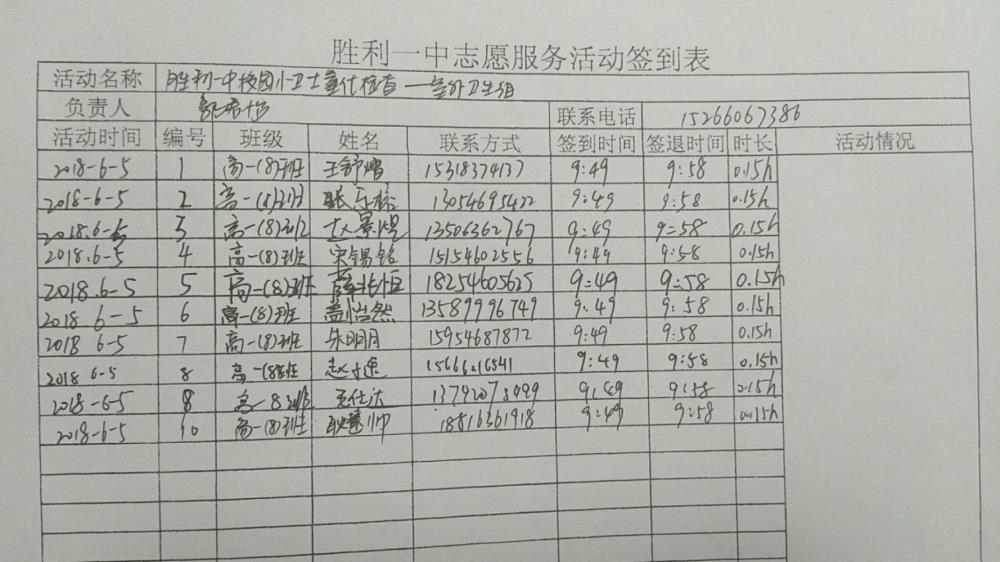 胜利一中志愿服务活动签到表
活动名称 胜利一中校园小卫士量化检查——室外卫生组
负责人 联系电话 15266067386
活动时间 编号 班级 姓名 联系方式 签到时间 签退时间 时长 活动情况
2018-6-5 1 高一(8)班 王舒 15318374137 9:49 9:58 0.15h
2018-6-5 2 高一(8)班 张 13054695422 9:49 9:58 0.15h
2018.6-5 3 高一(8)班 景煜 13506362767 9:49 9:58 0.15h
2018.6-5 4 高一(8)班 宋锡铭 15154602556 9:49 9:58 0.15h
2018.6-5 5 高一(8)班 18254605625 9:49 9:58 0.15h
2018 6-5 6 高一(8)班 盖怡然 13589996749 9:49 9:58 0.15h
2018 6-5 7 高一(8)班 朱明月 15954687872 9:49 9:58 0.15h
2018 6-5 8 高一(8)班 赵 15666216541 9:49 9:58 0.15h
2018-6-5 9 高一8班 王仕达 13792073499 9:49 9:58 0.15h
2018-6-5 10 高一(8)班 耿 帅 18816361918 9:49 9:58 0.15h